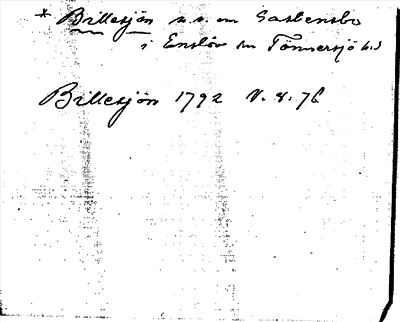 * Billesjön n.v. om Gasbensbo
i Enslöv sn Tönnersjö hd
Billesjön 1792 V. 8: 76